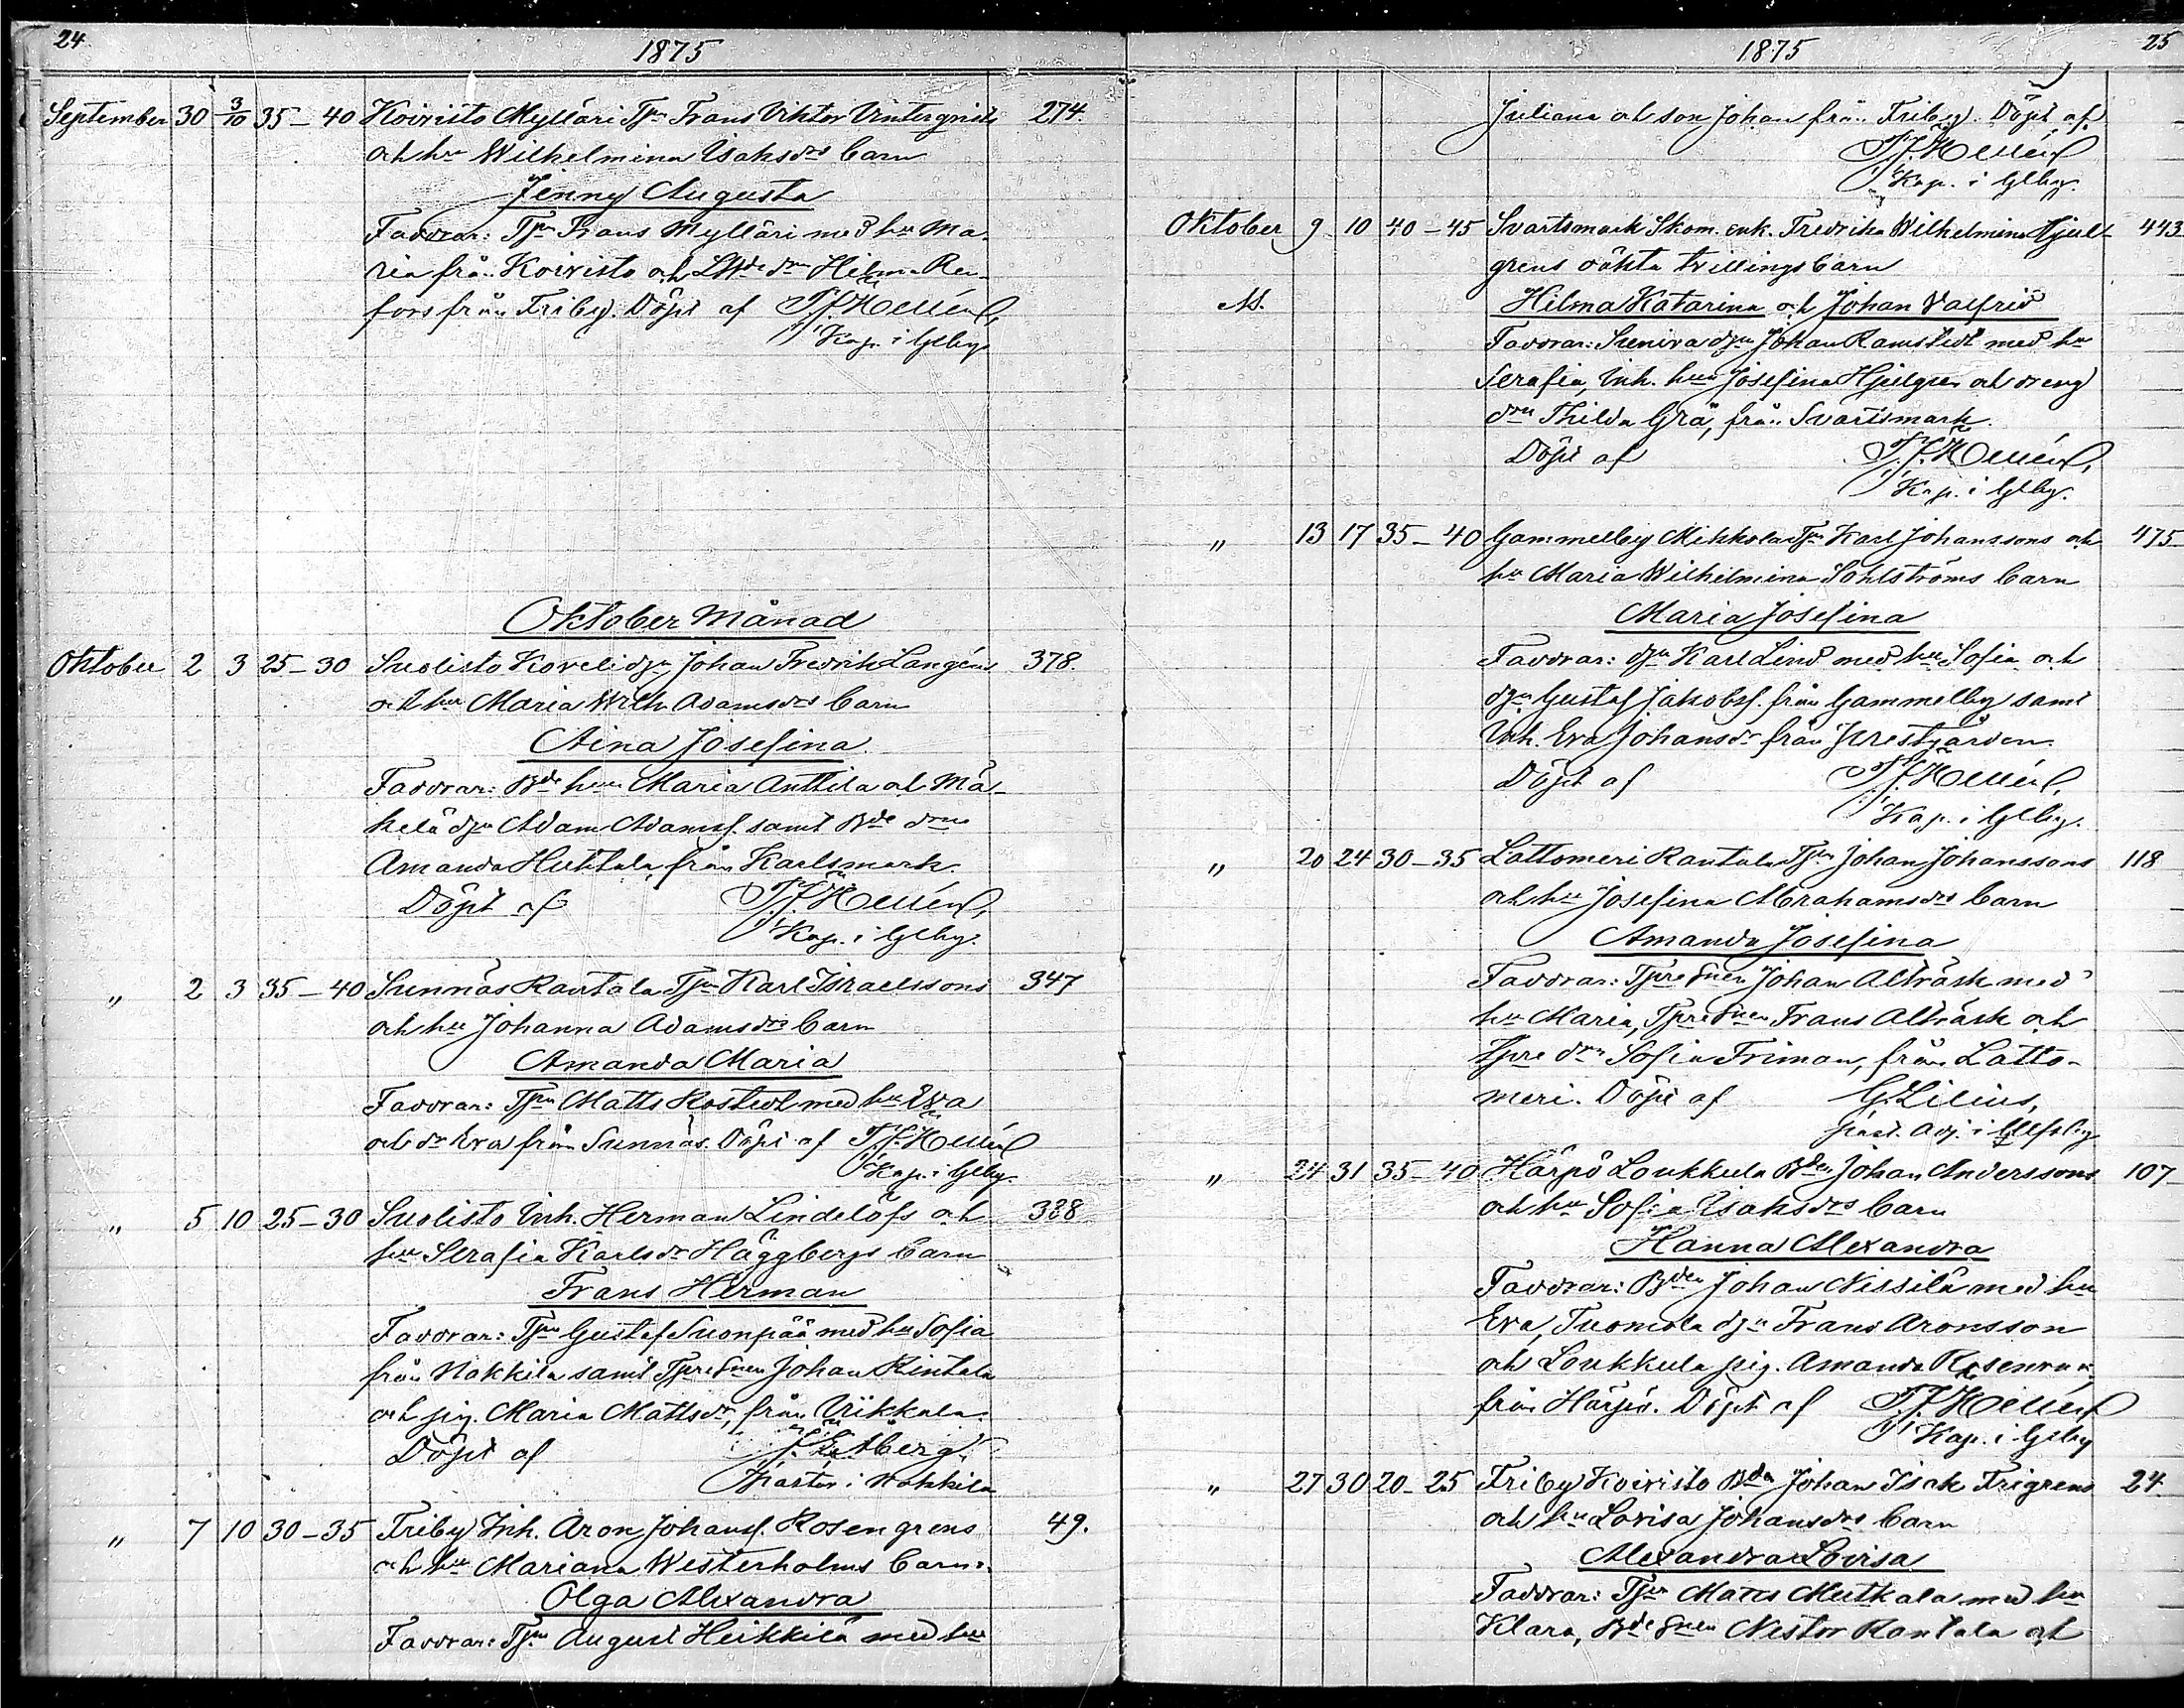 24
1875
September 30 3/10 35-40 Koivisto Mylläri Tpn Frans Viktor Vinterqvists 274.
och hu Wilhelmina Isaksdrs barn
Jenny Augusta
Faddrar: Tpn Frans Mylläri med hu Ma-
ria från Koivisto och drn Hilma Ren-
fors från Friby. Döpt af T.J. Hellén,
Kap. i Ulfby
Oktober Månad
Oktober 2 3 25-30 Suolisto Koveli djn Johan Fredrik Langéns 378.
och hu Maria Wilh. Adamsdrs barn
Aina Josefina
Faddrar: Bde hun Maria Anttila och Mä-
kelä djn Adam Adamss. samt Bde drn
Amanda Huhtala, från Karlsmark.
Döpt af T.J. Hellén,
Kap. i Ulfby.
" 2 3 35-40 Sunnäs Rantala Tpn Karl Israelssons 347
och hu Johanna Adamsdrs barn
Amanda Maria
Faddrar: Tpn Matts Rostedt med hu Eva
och dr Eva från Sunnäs. Döpt af T.J. Hellén
Kap. i Ulfby.
" 5 10 25-30 Suolisto Inh. Herman Lindelöfs och 328
hu Serafia Karlsdr Häggbergs barn
Frans Herman
Faddrar: Tpn Gustaf Suonpää med hu Sofia
från Nakkila samt Tpresnen Johan Rintala
och pig. Maria Mattsdr, från Viikkala.
Döpt af
Pastor i Nakkila
" 7 10 30-35 Friby Inh. Aron Johanss. Rosengrens 49.
och hu Mariana Westerholms barn
Olga Alexandra
Faddrar: Tpn August Heikkilä med hu
1875 25
Juliana och son Johan från Friby. Döpt af
T.J. Hellén
Kap. i Ulfby.
Oktober 9 10 40-45 Svartsmark Skom. enk. Fredrika Wilhelmina Hjel- 443
grens oäkta tvillingsbarn
Hilma Katarina och Johan Valfrid
Faddrar: djn Johan Ramstedt med hu
Serafia, Inh. hun Josefina Hjelgren och dreng
drn Thilda Grä, från Svartsmark.
Döpt af T.J. Hellén,
Kap. i Ulfby.
" 13 17 35-40 Gammelby Mikkola Tpn Karl Johanssons och 475
hu Maria Wilhelmina Sohlströms barn
Maria Josefina
Faddrar: djn Karl Lind med hu Sofia och
djn Gustaf Jakobss. från Gammelby samt
Inh. Eva Johansdr från Prestgården.
Döpt af T.J. Hellén,
Kap. i Ulfby.
" 20 24 30-35 Lattomeri Rantala Tpn Johan Johanssons 118
och hu Josefina Abrahamsdrs barn
Amanda Josefina
Faddrar: Tpresnen Johan Alträsk med
hu Maria, Tpresnen Frans Alträsk och
Tpre drn Sofia Friman, från Latto-
meri. Döpt af G. Lilius,
past. adj. i Ulfsby
" 24 31 35-40 Härpö Loukkula Bden Johan Anderssons 107
och hu Sofia Isaksdrs barn
Hanna Alexandra
Faddrar: Bden Johan Nissilä med hu
Eva, Tuomola djn Frans Aronsson
och Loukkula pig. Amanda
från Härpö. Döpt af T.J. Hellén
Kap. i Ulfby
" 27 30 20-25 Friby Koivisto Bdn Johan Isak Frigrens 24
och hu Lovisa Johansdrs barn
Alexandra Lovisa
Faddrar: Tpn Matts Mutkala med hu
Klara, Bdesnen Nestor Rantala och